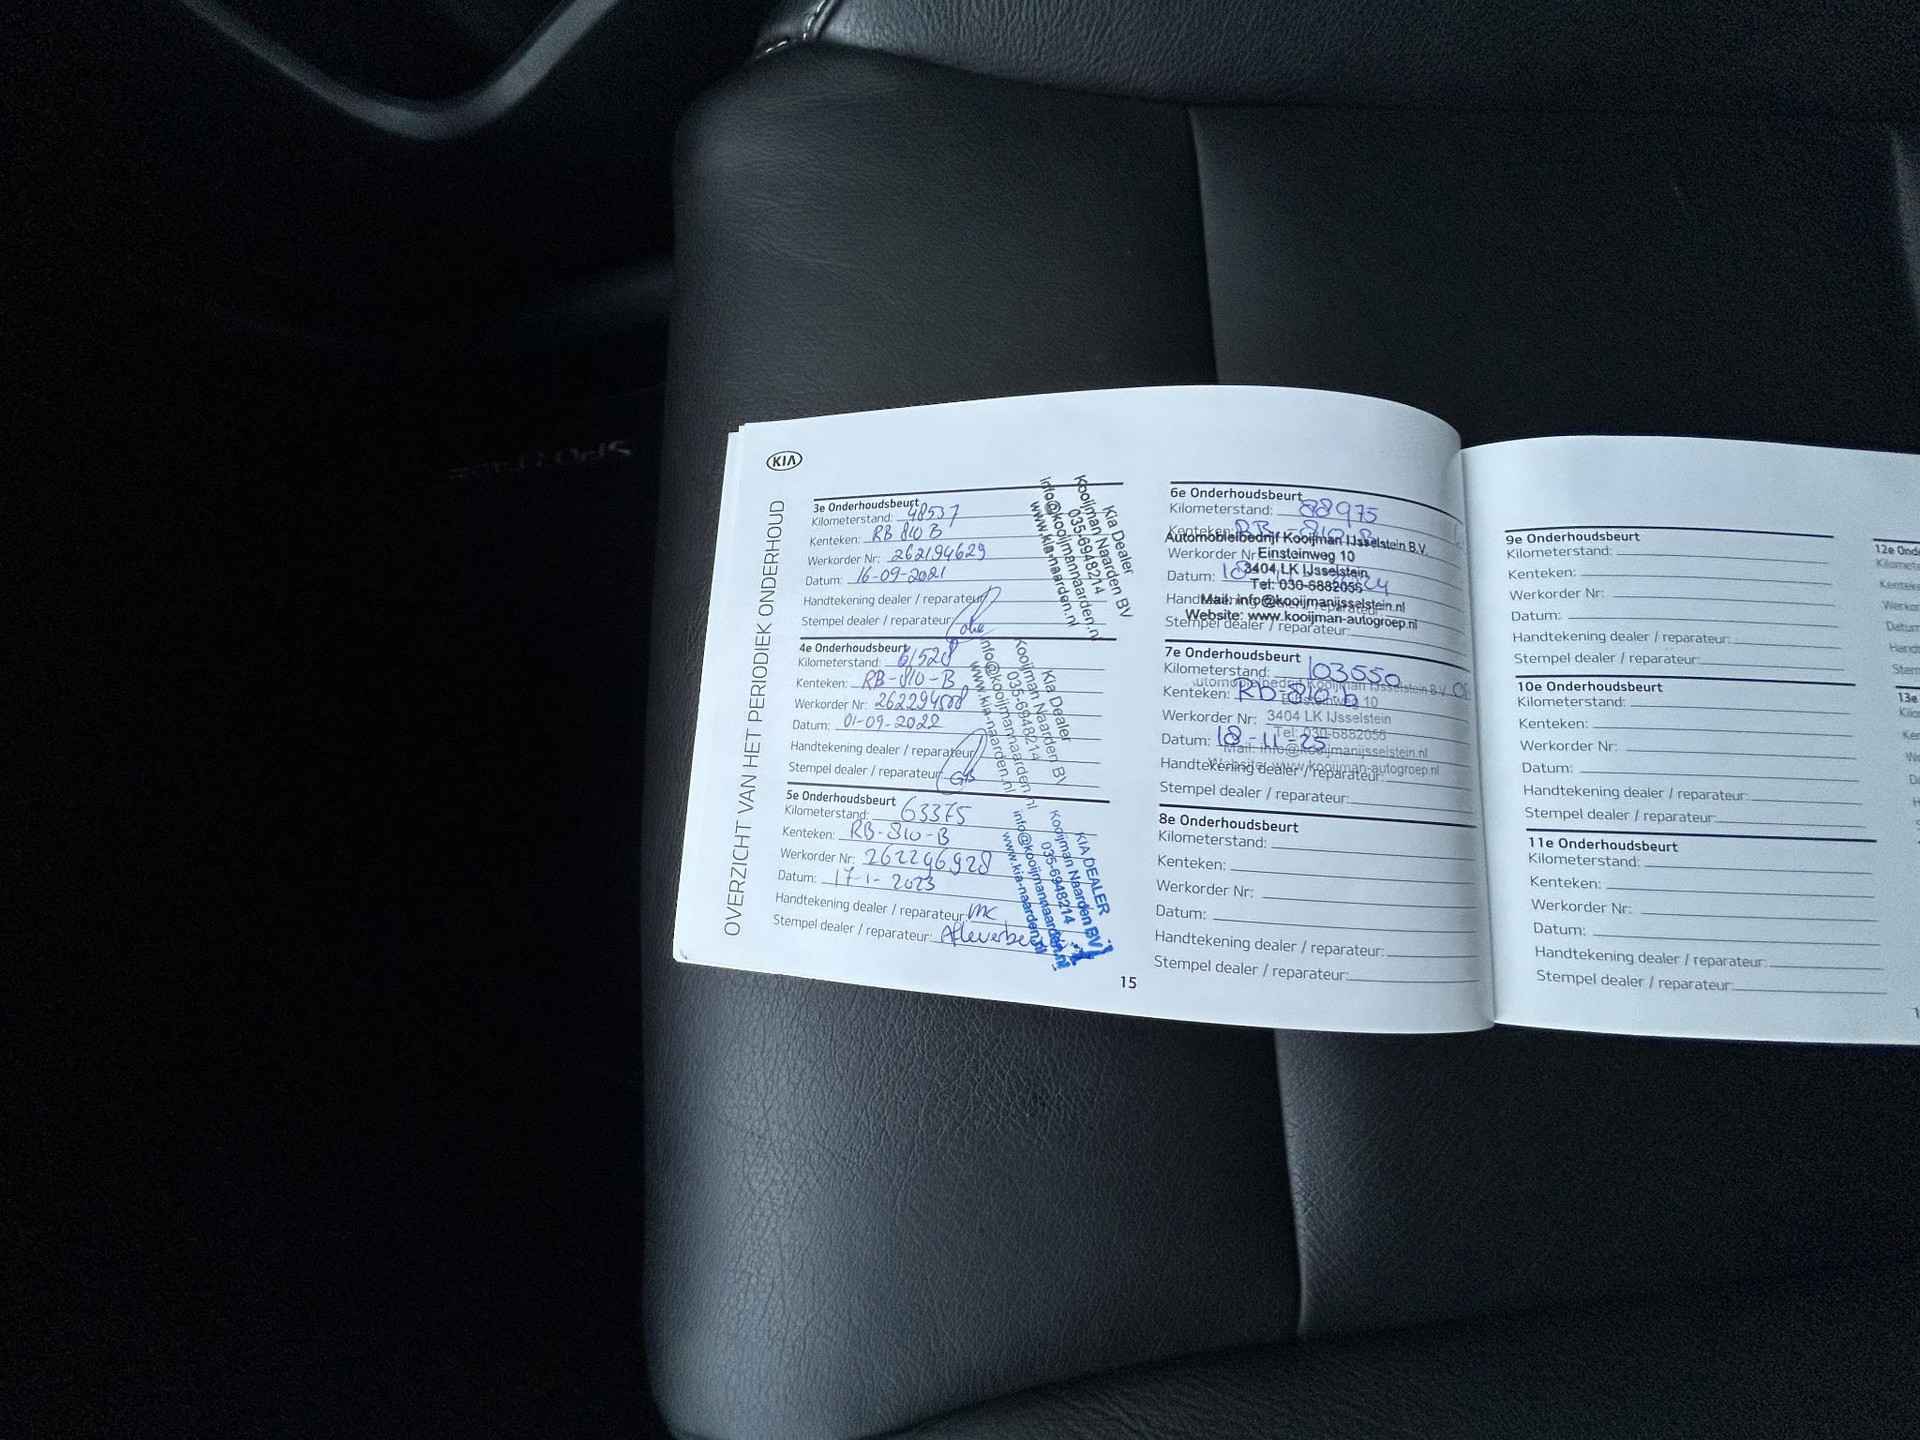 KIA
OVERZICHT VAN HET PERIODIEK ONDERHOUD
3e Onderhoudsbeurt
Kilometerstand: 48537
Kenteken: RB 810 B
Werkorder Nr: 262194629
Datum: 16-09-2021
Handtekening dealer / reparateur:
Stempel dealer / reparateur:
Kia Dealer
Kooijman Naarden BV
035-6948214
info@kooijmannaarden.nl
www.kia-naarden.nl
4e Onderhoudsbeurt
Kilometerstand: 61528
Kenteken: RB-810-B
Werkorder Nr: 262294508
Datum: 01-09-2022
Handtekening dealer / reparateur:
Stempel dealer / reparateur: GB
Kia Dealer
Kooijman Naarden BV
035-6948214
info@kooijmannaarden.nl
www.kia-naarden.nl
5e Onderhoudsbeurt
Kilometerstand: 63375
Kenteken: RB-810-B
Werkorder Nr: 262296928
Datum: 17-1-2023
Handtekening dealer / reparateur: MC
Stempel dealer / reparateur: Afleverbeurt
KIA DEALER
Kooijman Naarden BV
035-6948214
info@kooijmannaarden.nl
www.kia-naarden.nl
15
6e Onderhoudsbeurt
Kilometerstand: 88975
Kenteken: RB-810-B
Automobielbedrijf Kooijman IJsselstein B.V.
Werkorder Nr
Einsteinweg 10
3404 LK IJsselstein
Datum: 18
Tel: 030-6882056
Mail: info@kooijmanijsselstein.nl
Website: www.kooijman-autogroep.nl
Stempel dealer / reparateur:
7e Onderhoudsbeurt
Kilometerstand: 103550
Automobielbedrijf Kooijman IJsselstein B.V.
Kenteken: Rb-810-b
Einsteinweg 10
Werkorder Nr: 3404 LK IJsselstein
Tel: 030-6882056
Datum: 18-11-25
Mail: info@kooijmanijsselstein.nl
Website: www.kooijman-autogroep.nl
Handtekening dealer / reparateur:
Stempel dealer / reparateur:
8e Onderhoudsbeurt
Kilometerstand:
Kenteken:
Werkorder Nr:
Datum:
Handtekening dealer / reparateur:
Stempel dealer / reparateur:
9e Onderhoudsbeurt
Kilometerstand:
Kenteken:
Werkorder Nr:
Datum:
Handtekening dealer / reparateur:
Stempel dealer / reparateur:
10e Onderhoudsbeurt
Kilometerstand:
Kenteken:
Werkorder Nr:
Datum:
Handtekening dealer / reparateur:
Stempel dealer / reparateur:
11e Onderhoudsbeurt
Kilometerstand:
Kenteken:
Werkorder Nr:
Datum:
Handtekening dealer / reparateur:
Stempel dealer / reparateur:
12e
13e